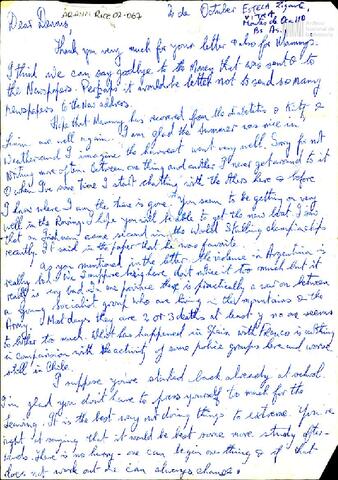 ARANM RICE 02-067
2 de October
Estela Zigame,
Dear Parents,
Thank you very much for your letter & also for Mammys.
I think we can say goodbye to the money that was sent & to
the Newspapers. Perhaps it would be better not to send so many
newspapers to the New address.
Hope that Mammy has recovered from the diabetitis & Kitty &
are well again. I am glad the summer was nice in
weather and I imagine the harvest went very well. Sorry for not
writing more often between one thing and another I never get around to it
& when I've some time I start chatting with the others here & before
I know where I am the time is gone. You seem to be getting on very
well in the Rowing. Hope you will be able to get the new boat. I saw
that an Irishman came second in the World Sculling championships
recently. It said in the paper that he was favorite.
As you mentioned in the letter the violence in Argentina is
really bad. I suppose being here dont notice it too much but it
really is very bad. In one province there is practically a war on between
a group of specialist group who are living in the mountains & the
Army. Most days they are 2 or 3 deaths at least & no one seems
to bother too much. What has happened in Spain with Franco is nothing
in comparison with the activity of some police groups here and worse
still in Chile.
I suppose you've started back already at school.
I'm glad you dont have to pass yourself too much for the
. It is the best way not doing things to extreme. You're
right in saying that it would be best some more study after-
wards. There is no hurry - one can begin one thing & if that
does not work out one can always change.